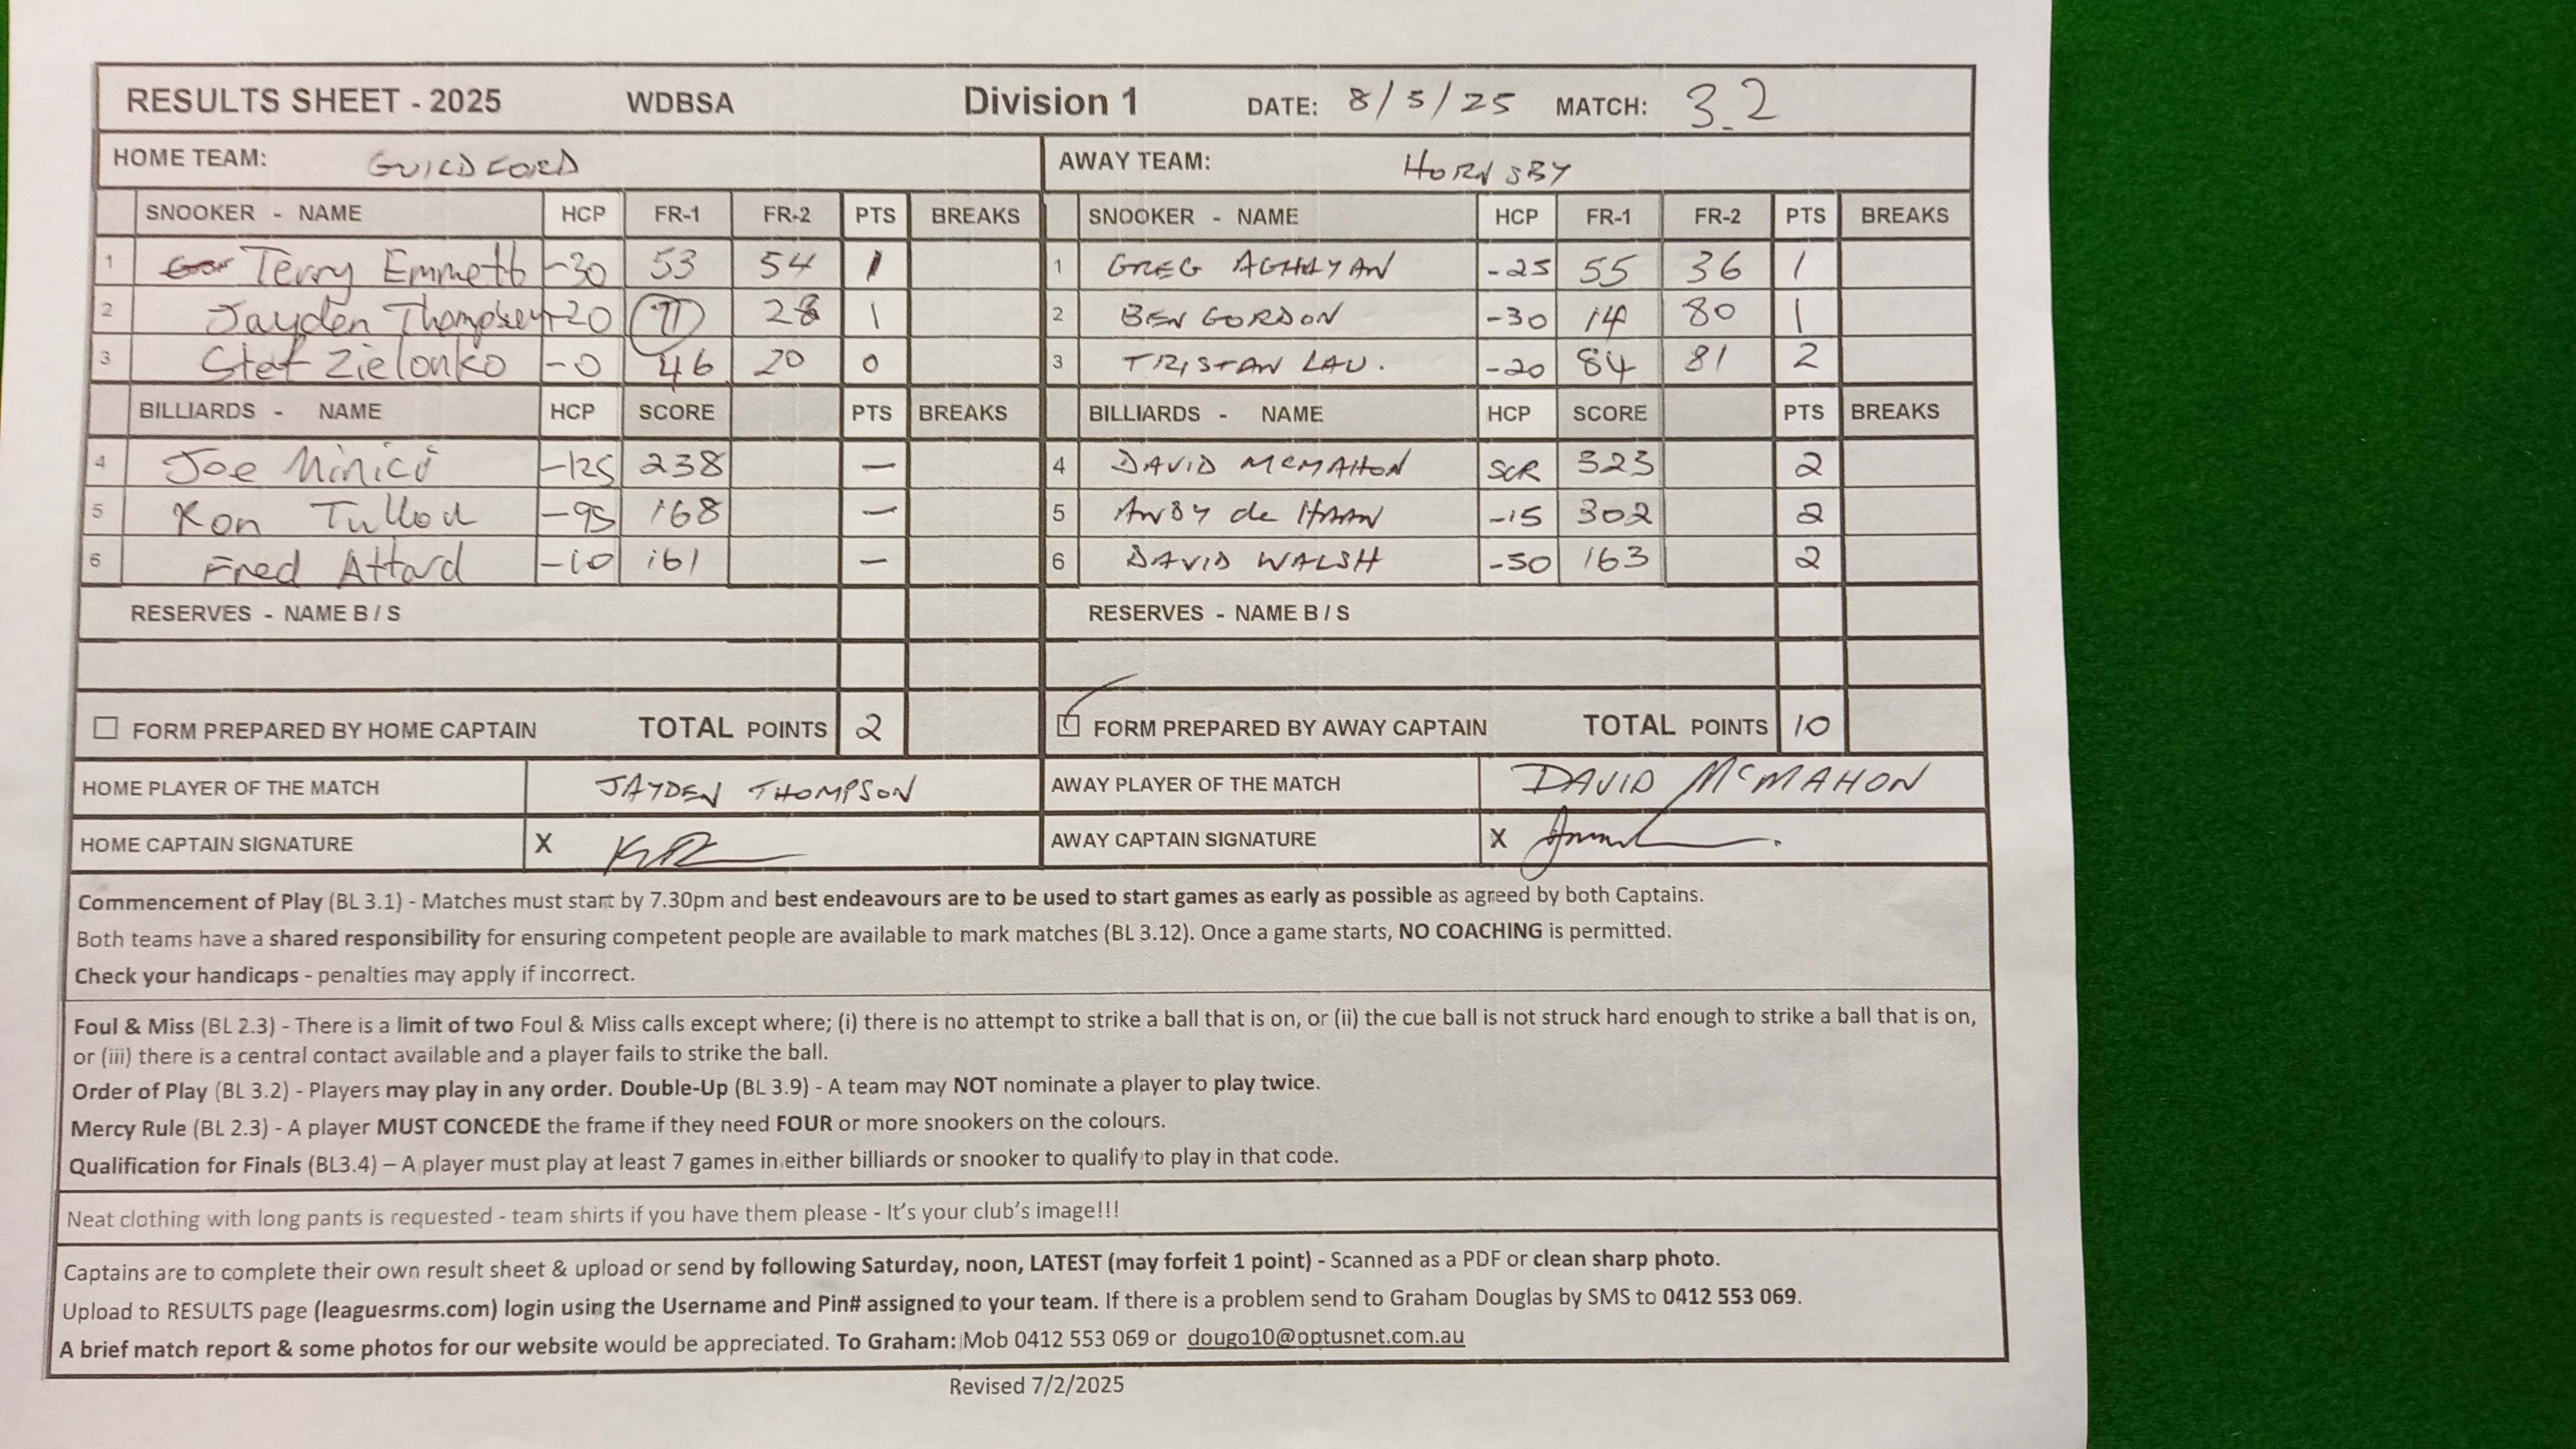 RESULTS SHEET - 2025 WDBSA Division 1 DATE: 8/5/25 MATCH: 3.2
HOME TEAM: GUILDFORD AWAY TEAM: HORNSBY
SNOOKER - NAME HCP FR-1 FR-2 PTS BREAKS SNOOKER - NAME HCP FR-1 FR-2 PTS BREAKS
1 Terry Emmett -30 53 54 1 1 GREG AGHAYAN -25 55 36 1
2 Jayden Thompson -20 71 28 1 2 BEN GORDON -30 14 80 1
3 Stef Zielonko -0 46 20 0 3 TRISTAN LAU. -20 84 81 2
BILLIARDS - NAME HCP SCORE PTS BREAKS BILLIARDS - NAME HCP SCORE PTS BREAKS
4 Joe Minici -125 238 — 4 DAVID McMAHON SCR 323 2
5 Ron -95 168 — 5 ANDY de HAAN -15 302 2
6 Fred Attard -10 161 — 6 DAVID WALSH -50 163 2
RESERVES - NAME B / S RESERVES - NAME B / S
FORM PREPARED BY HOME CAPTAIN TOTAL POINTS 2 FORM PREPARED BY AWAY CAPTAIN TOTAL POINTS 10
HOME PLAYER OF THE MATCH JAYDEN THOMPSON AWAY PLAYER OF THE MATCH DAVID McMAHON
HOME CAPTAIN SIGNATURE X AWAY CAPTAIN SIGNATURE X
Commencement of Play (BL 3.1) - Matches must start by 7.30pm and best endeavours are to be used to start games as early as possible as agreed by both Captains.
Both teams have a shared responsibility for ensuring competent people are available to mark matches (BL 3.12). Once a game starts, NO COACHING is permitted.
Check your handicaps - penalties may apply if incorrect.
Foul & Miss (BL 2.3) - There is a limit of two Foul & Miss calls except where; (i) there is no attempt to strike a ball that is on, or (ii) the cue ball is not struck hard enough to strike a ball that is on,
or (iii) there is a central contact available and a player fails to strike the ball.
Order of Play (BL 3.2) - Players may play in any order. Double-Up (BL 3.9) - A team may NOT nominate a player to play twice.
Mercy Rule (BL 2.3) - A player MUST CONCEDE the frame if they need FOUR or more snookers on the colours.
Qualification for Finals (BL3.4) – A player must play at least 7 games in either billiards or snooker to qualify to play in that code.
Neat clothing with long pants is requested - team shirts if you have them please - It's your club's image!!!
Captains are to complete their own result sheet & upload or send by following Saturday, noon, LATEST (may forfeit 1 point) - Scanned as a PDF or clean sharp photo.
Upload to RESULTS page (leaguesrms.com) login using the Username and Pin# assigned to your team. If there is a problem send to Graham Douglas by SMS to 0412 553 069.
A brief match report & some photos for our website would be appreciated. To Graham: Mob 0412 553 069 or dougo10@optusnet.com.au
Revised 7/2/2025